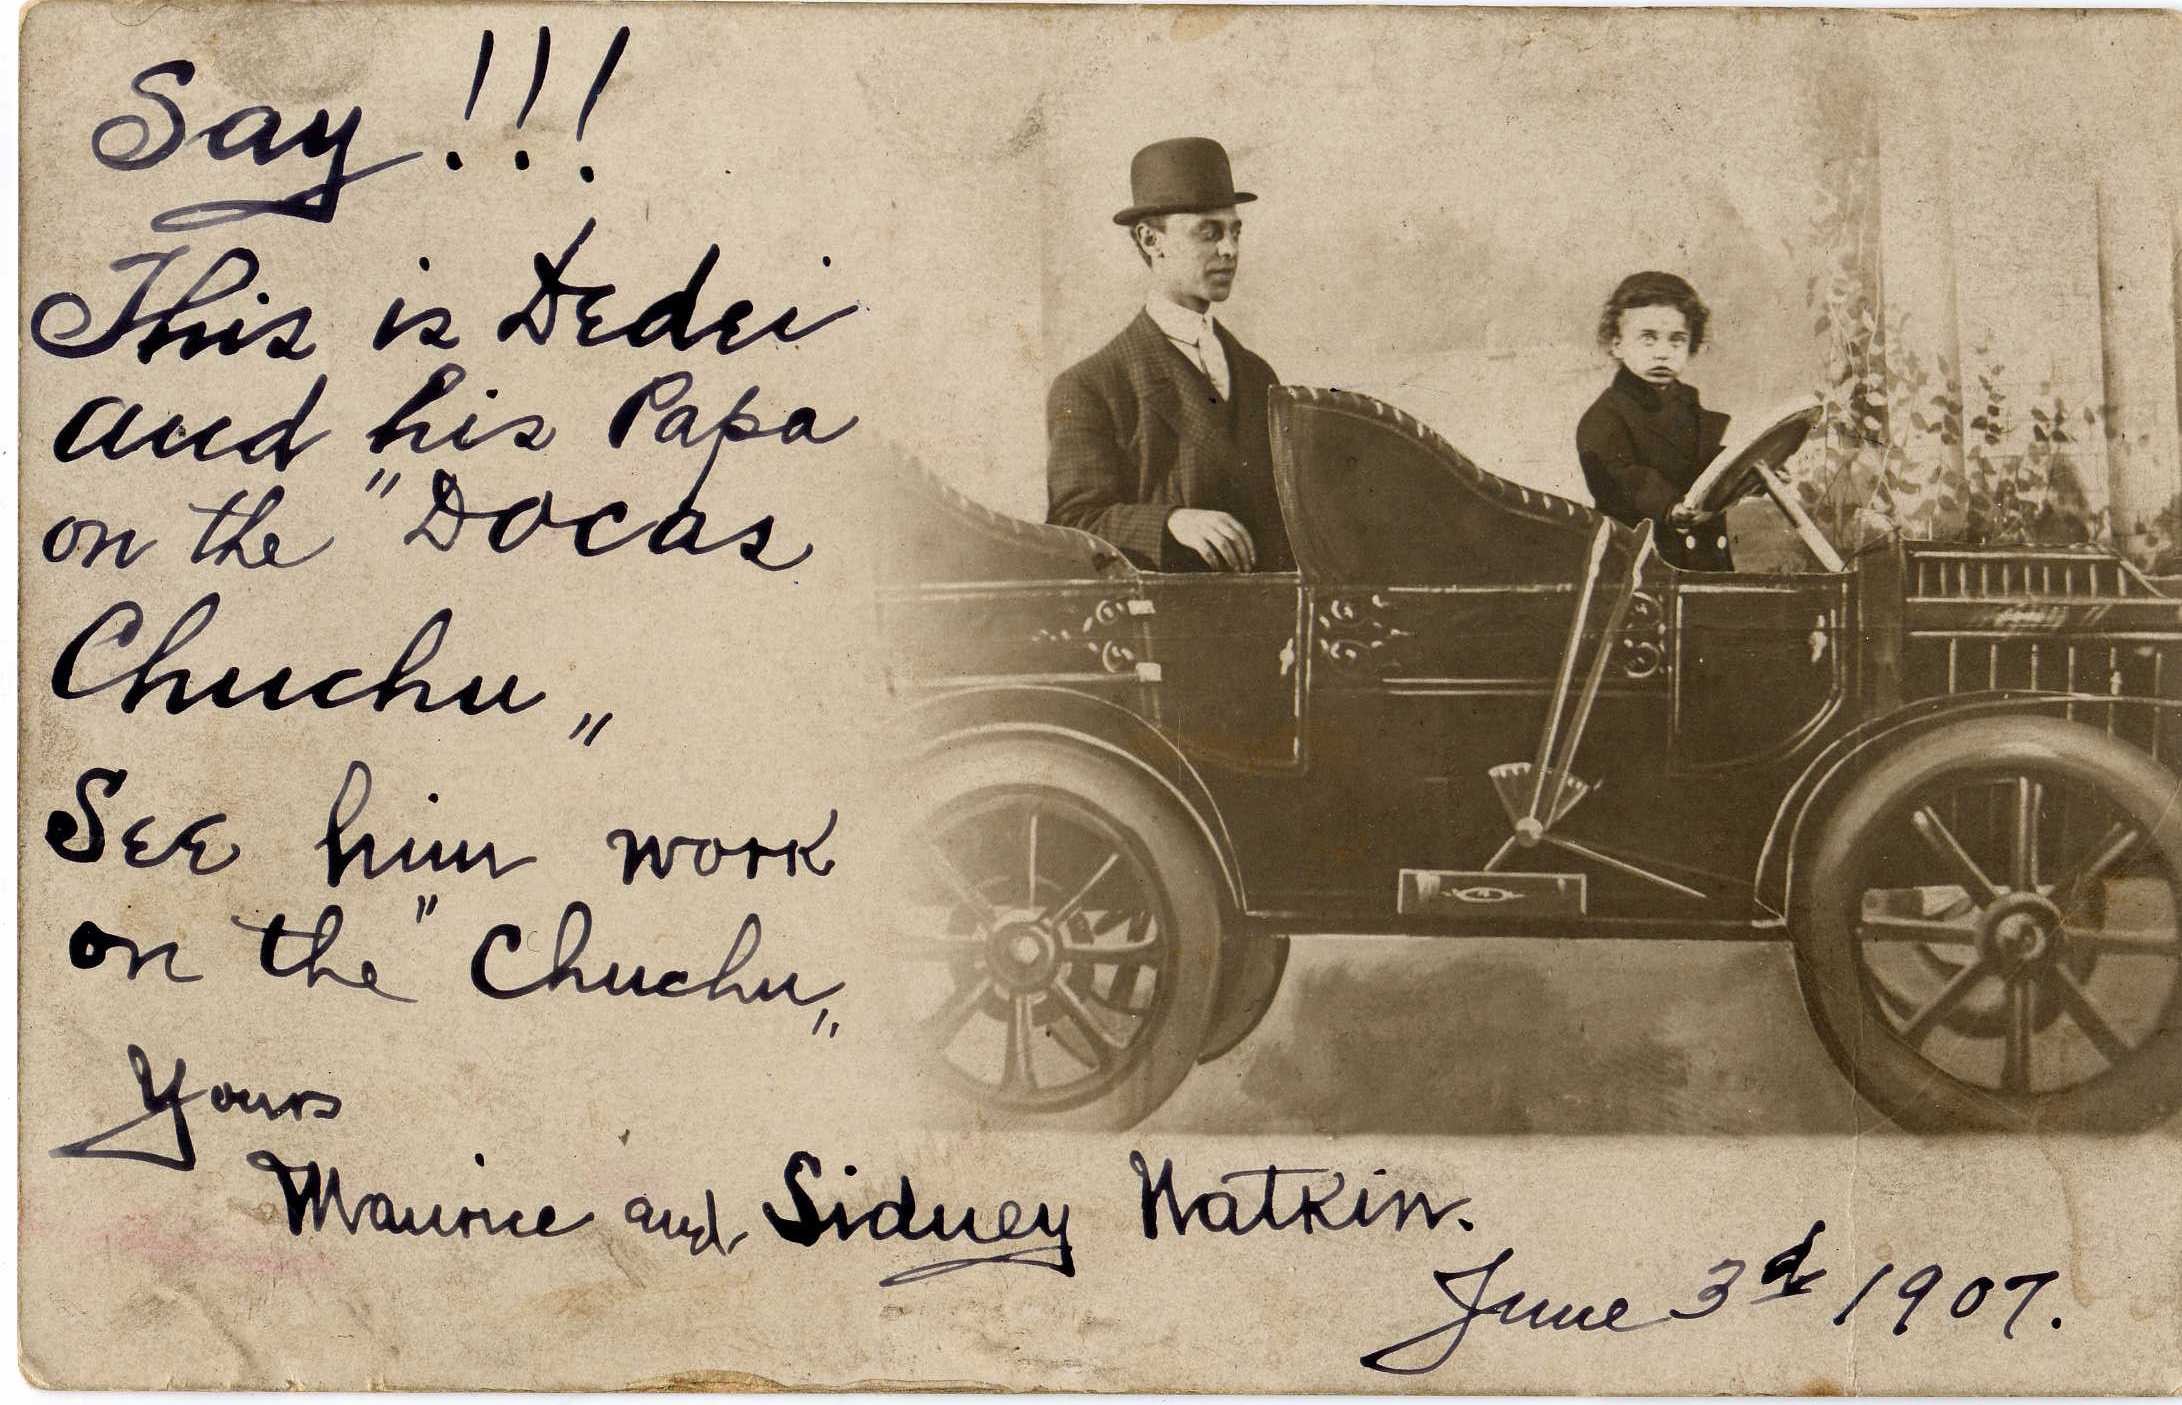 Say!!!
This is Dedei
and his Papa
on the "Docas
Chuchu„
See him work
on the "Chuchu„
Yours
Maurice and Sidney Watkin.
June 3d 1907.